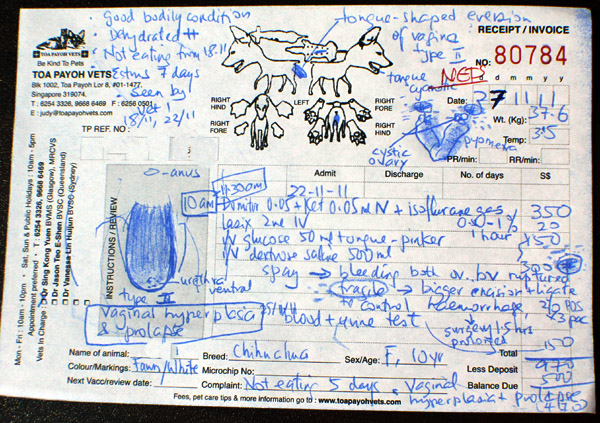 • good bodily condition
• Dehydrated ++
• Not eating from 18.11
Estrus 7 days
• Seen by
Vet 1
18/11, 22/11
tongue-shaped eversion
of vagina
type II
tongue
cyanotic
TOA PAYOH VETS
Be Kind To Pets
TOA PAYOH VETS
Blk 1002, Toa Payoh Lor 8, #01-1477,
Singapore 319074.
T : 6254 3326, 9668 6469 F : 6256 0501
E : judy@toapayohvets.com
TP REF. NO :
RECEIPT / INVOICE
NO: 80784
d d m m y y
Date: 27 11 11
Wt. (Kg): 37.6
Temp: 3.5
PR/min: RR/min:
pyometra
cystic
ovary
RIGHT HIND
RIGHT FORE
LEFT
RIGHT FORE
RIGHT HIND
Mon - Fri : 10am - 9pm • Sat, Sun & Public Holidays : 10am - 5pm
Appointment preferred • T : 6254 3326, 9668 6469
Vets In Charge
Dr Sing Kong Yuen BVMS (Glasgow), MRCVS
Dr Jason Teo E-Shen BVSC (Queensland)
Dr Vanessa Lin Huijun BVSC (Sydney)
INSTRUCTIONS / REVIEW
anus
urethra
ventral
type II
vaginal hyperplasia
& prolapse
Admit Discharge No. of days S$
11.30am 22-11-11
10am Domitor 0.05 + Ket 0.05 ml IV + isoflurane gas 350
lasix 2ml IV 1 hour 20
IV glucose 50 ml tongue - pinker 150
IV dextrose saline 500 ml
spay → bleeding both ov. bv ruptured 300
fragile → bigger excision + ligate
to control haemorrhage,
blood + urine test
surgery 1.5 hrs
prolonged
150
Name of animal: Breed: Chihuahua Sex/Age: F, 10yr Total 970
Colour/Markings: Fawn/White Microchip No: Less Deposit 500
Next Vacc/review date: Complaint: Not eating 5 days, vaginal Balance Due
hyperplasia + prolapse 470
Fees, pet care tips & more information go to : www.toapayohvets.com